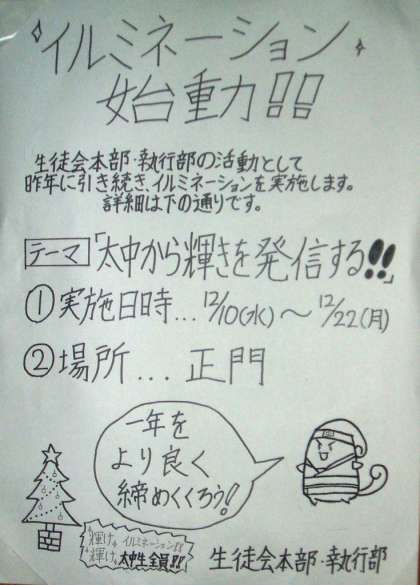 イルミネーション
始動!!
生徒会本部・執行部の活動として
昨年に引き続き、イルミネーションを実施します。
詳細は下の通りです。
テーマ「太中から輝きを発信する!!」
①実施日時…12/10(水)～12/22(月)
②場所…正門
一年を
より良く
締めくくろう!
輝け
輝け 太中生全員!!
生徒会本部・執行部